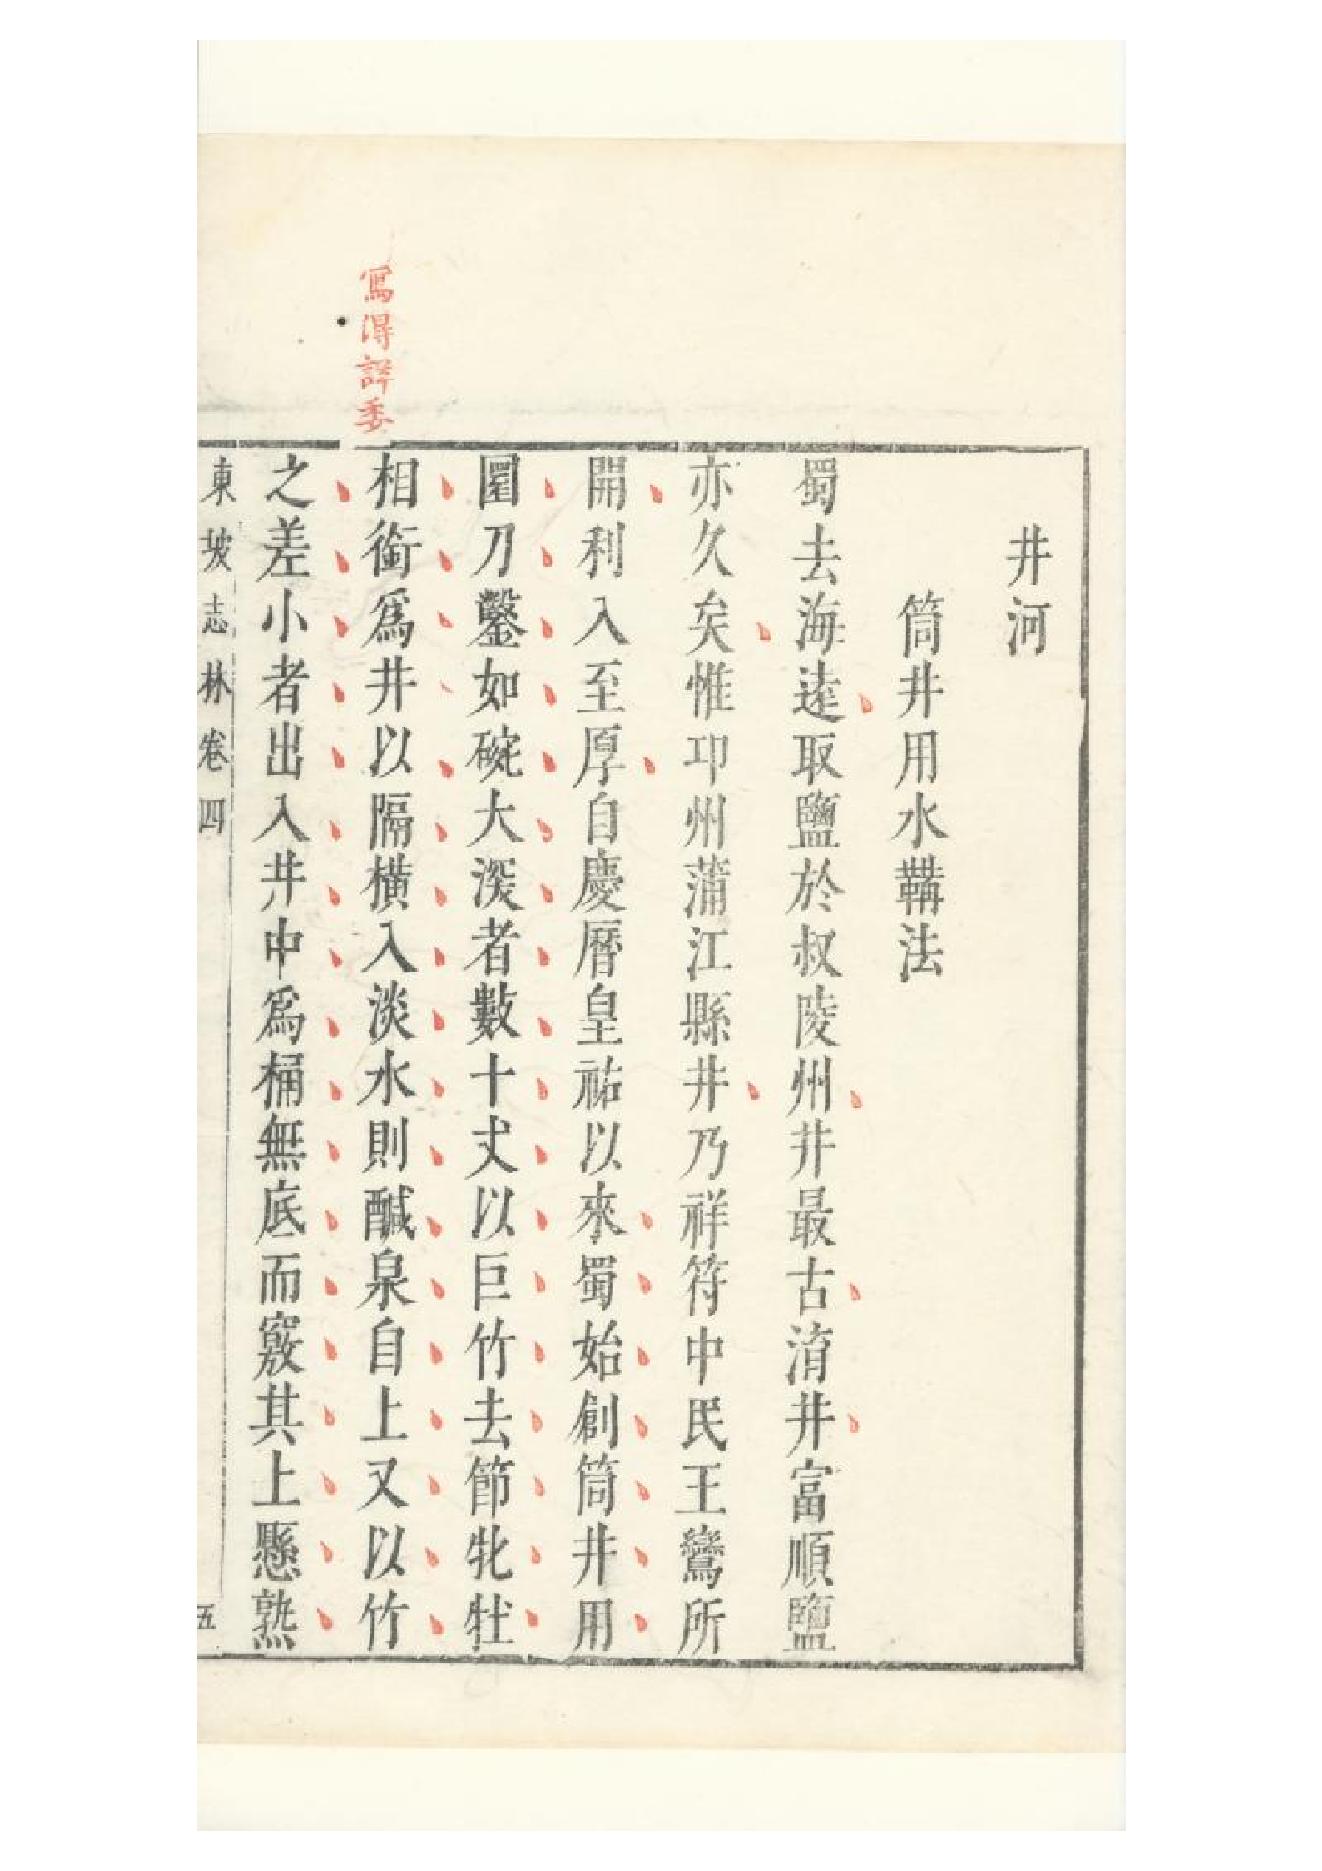 井河
筒井用水鞲法
蜀去海遠取鹽於叔陵州井最古淯井富順鹽
亦久矣惟邛州蒲江縣井乃祥符中民王鸞所
開利入至厚自慶曆皇祐以來蜀始創筒井用
圜刀鑿如碗大深者數十丈以巨竹去節牝牡
相銜爲井以隔橫入淡水則醎泉自上又以竹
之差小者出入井中爲桶無底而竅其上懸熟
寫得詳委
東坡志林卷四
五